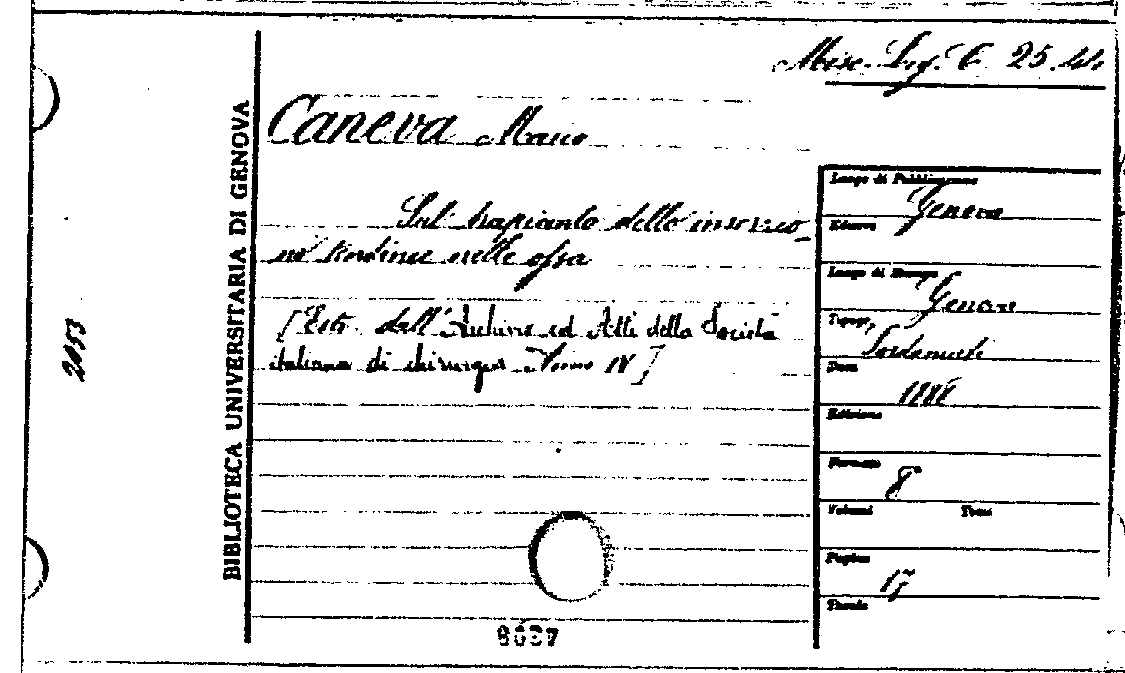 Misc. Lig. C 25.44
BIBLIOTECA UNIVERSITARIA DI GENOVA
Caneva Mario
Sul trapianto delle inserzio_
ni tendinee nelle ossa
[Estr. dall'Archivio ed Atti della Società
italiana di chirurgia Anno IV]
Luogo di Pubblicazione
Genova
Editore
Luogo di Stampa
Genova
Tipogr.
Sordomuti
Data
Edizione
Formato
8°
Volumi Tomi
Pagine
17
Tavole
2053